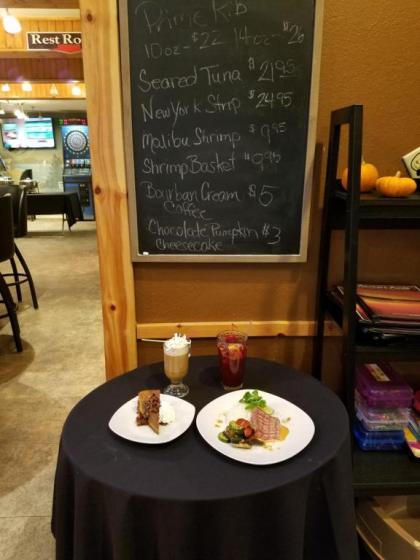 Rest Ro
Prime Rib
10oz-$22 14oz-$26
Seared Tuna $21.95
New York Strip $24.95
Malibu Shrimp $9.95
Shrimp Basket $9.95
Bourban Cream $5
Coffee
Chocolate Pumpkin $3
Cheesecake